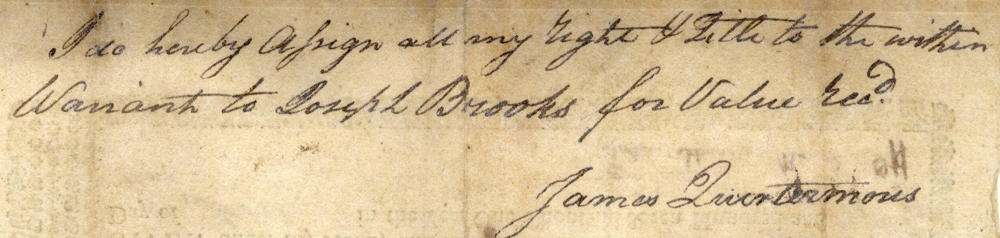 I do hereby Assign all my right & Title to the within
Warrant to Joseph Brooks for Value recd.
James Quertermous